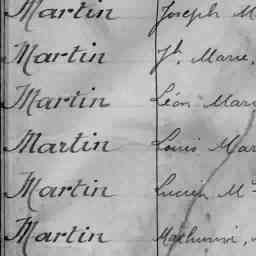 Martin Joseph M
Martin Jh. Marie,
Martin Léon Mari
Martin Louis Mar
Martin Lucien M
Martin Mathurin,